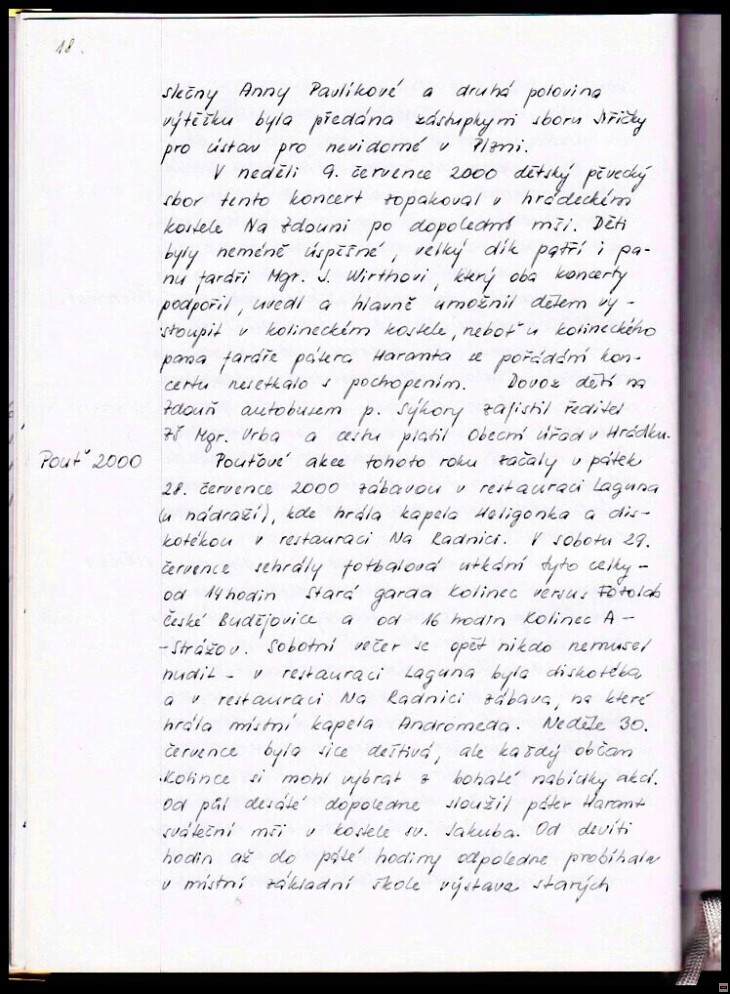 18.
slečny Anny Pavlíkové a druhá polovina
výtěžku byla předána zástupkyni sboru
pro ústav pro nevidomé v Plzni.
V neděli 9. července 2000 dětský pěvecký
sbor tento koncert zopakoval v hrádeckém
kostele Na Zdouni po dopolední mši. Děti
byly neméně úspěšné, velký dík patří i pa-
nu faráři Mgr. J. Wirthovi, který oba koncerty
podpořil, uvedl a hlavně umožnil dětem vy-
stoupit v kolineckém kostele, neboť u kolineckého
pana faráře pátera Haranta se pořádání kon-
certu nesetkalo s pochopením. Dovoz dětí na
Zdouň autobusem p. Sýkory zajistil ředitel
ZŠ Mgr. Vrba a cestu platil Obecní úřad v Hrádku.
Pouť 2000
Pouťové akce tohoto roku začaly v pátek
28. července 2000 zábavou v restauraci Laguna
(u nádraží), kde hrála kapela Heligonka a dis-
kotékou v restauraci Na Radnici. V sobotu 29.
července sehrály fotbalová utkání tyto celky -
od 14 hodin stará garda Kolinec versus Fotolab
České Budějovice a od 16 hodin Kolinec A -
- Strážov. Sobotní večer se opět nikdo nemusel
nudit - v restauraci Laguna byla diskotéka
a v restauraci Na Radnici zábava, na které
hrála místní kapela Andromeda. Neděle 30.
července byla sice deštivá, ale každý občan
Kolince si mohl vybrat z bohaté nabídky akcí.
Od půl desáté dopoledne sloužil páter Harant
sváteční mši v kostele sv. Jakuba. Od devíti
hodin až do páté hodiny odpoledne probíhala
v místní základní škole výstava starých